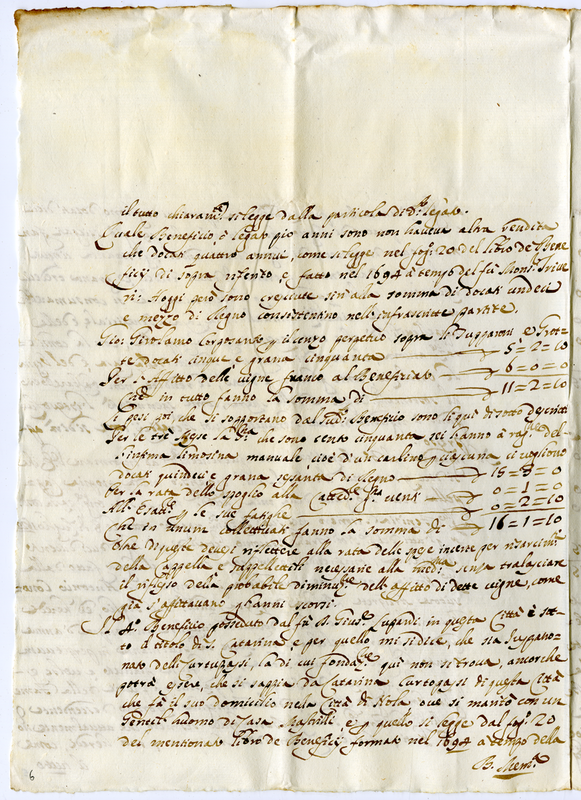 il tutto chiaram.te si legge dalla particola di d.o legato.
Quale Beneficio, è legato pio anni sono non haveva altra rendita
che docati quattro annui, come si legge nel fog: 20 del libro de Bene
ficij di sopra riferito, e fatto nel 1694 à tempo del fù Mons.r
ni: Hoggi però sono cresciute sin'alla somma di docati undeci
e mezzo di Regno consistentino nell'infrascritte partite.
Gio: Girolamo per il censo perpetuo sopra li e Grot
te docati cinque e grana cinquanta 5=2=10
Per l'Affitto delle vigne franco al Beneficiato 6=0=0
Che in tutto fanno la somma di 11=2=10
I pesi poi che si soppontano dal sud.o Beneficio sono li qui di sotto descritti
Per le trè messe la sett.na che sono cento cinquanta sei l'anno à rag.ne del
l'infima limosina manuale, cioè d'un carlino per ciascuna ci vogliono
docati quindeci e grana sessanta di Regno 15=3=0
Per la rata dello spoglio alla 0=1=0
All' per le sue fatighe 0=2=10
Che in unum collettivati fanno la somma di 16=1=10
Oltre di questo devesi riflettere alla rata delle spese incerte per risarcim.ti
della Cappella e suppellettili necessarie alla med.ma senza tralasciare
il riflesso della probabile diminuz.ne dell'affitto di dette vigne, come
già s'affittavano gl'anni scorsi.
Il 4.o Beneficio posseduto dal fù D. Gius.e in questa Città è sot
to il titolo di S. Catarina, e per quello mi si dice, che sia Juspatro
nato delli la di cui fondaz.ne quì non si trova, ancorche
potrà essere, che si sappia da Catarina di questa Città
che fà il suo domicilio nella Città di Nola ove si maritò con un
Gentil'huomo di Casa e per quello si legge dal fog: 20
del mentionato libro de Beneficij formato nel 1694 à tempo della
B. Mem.a
6